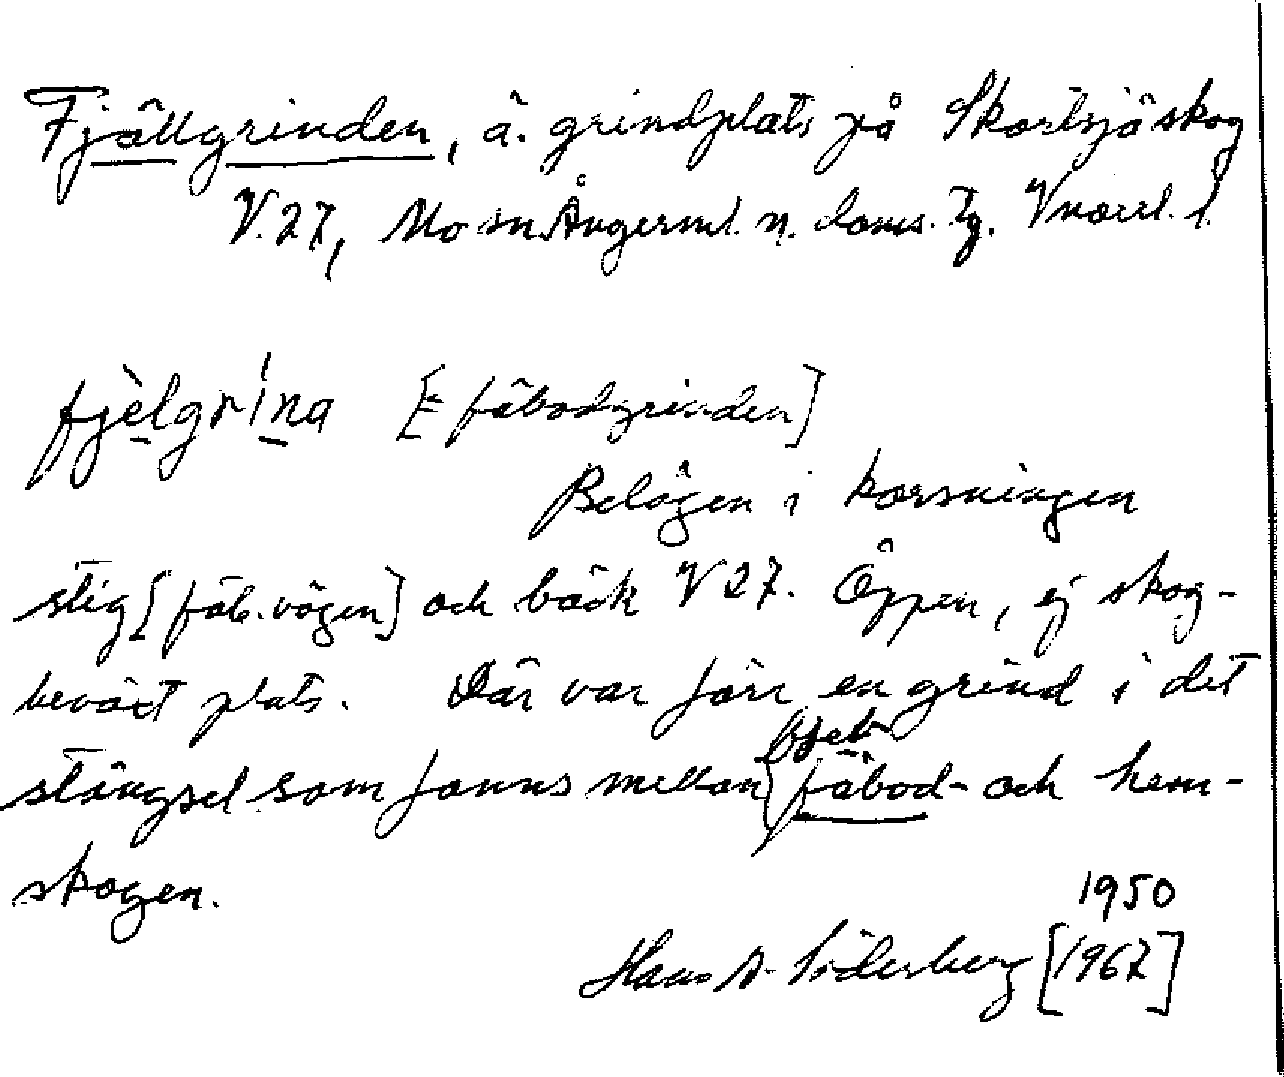 Fjällgrinden, ä. grindplats på Skortsjöskog
V.27, Mo sn. Ångerml. n. doms. Tg. Vnorrl. l.
fjèlgrína [= fäbodgrinden]
Belägen i korsningen
stig [fäb.vägen] och bäck V27. Öppen, ej skog-
beväxt plats. Där var förr en grind i det
stängsel som fanns mellan fäbod- och hem-
skogen.
1950
Hans A. Söderberg [1967]